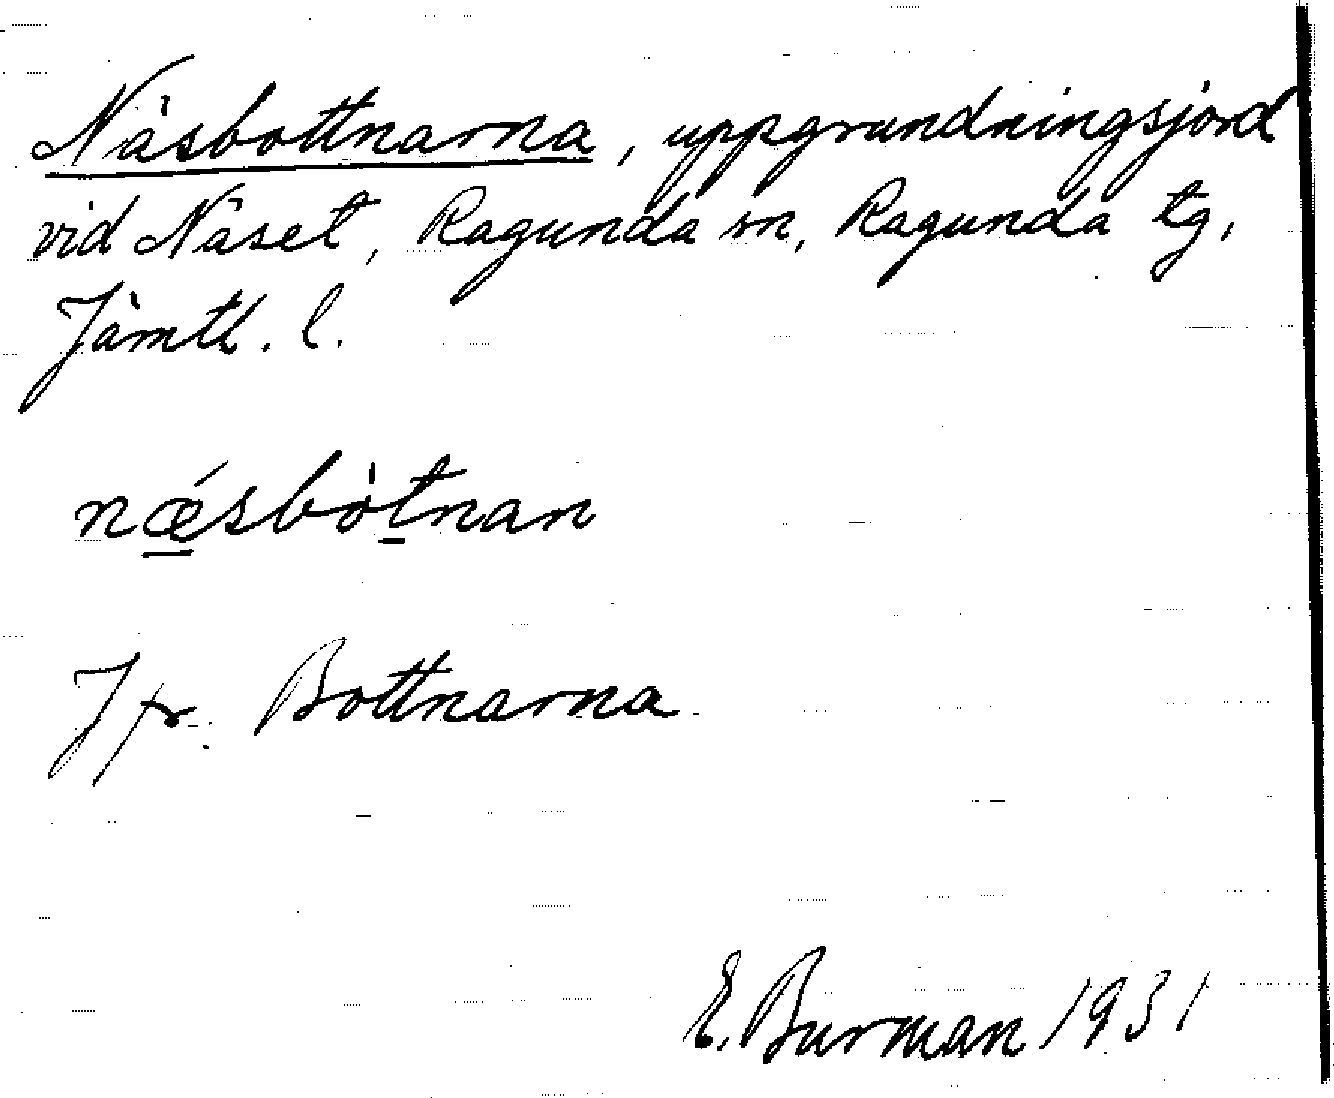 Näsbottnarna, uppgrundningsjord
vid Näset, Ragunda sn, Ragunda tg,
Jämtl. l.
nǽ̱sbòṯnan
Jfr. Bottnarna
E. Burman 1931